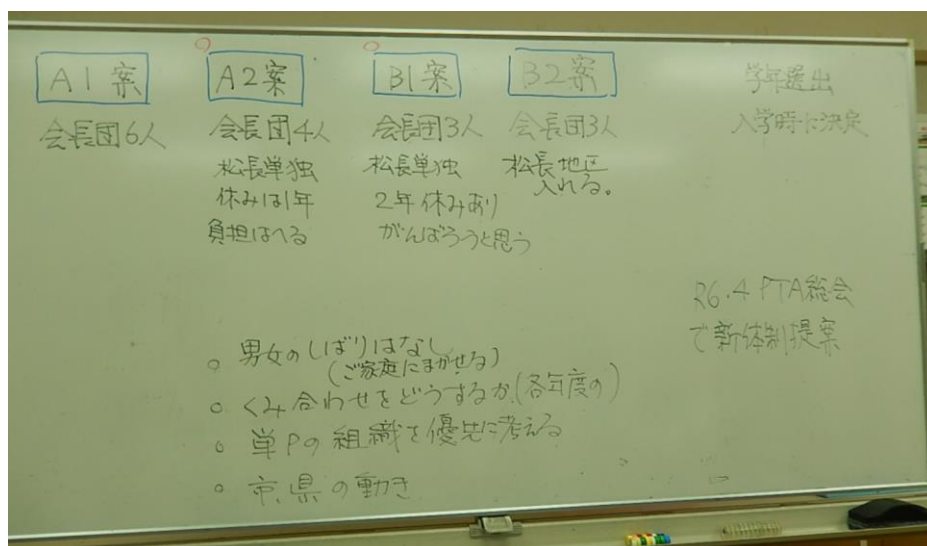 A1案
会長団6人
A2案
会長団4人
松長単独
休みは1年
負担はへる
B1案
会長団3人
松長単独
2年休みあり
がんばろうと思う
B2案
会長団3人
松長地区
入れる。
学年選出
入学時に決定
R6.4 PTA総会
で新体制提案
○ 男女のしばりはなし
(ご家庭にまかせる)
○ くみ合わせをどうするか(各年度の)
○ 単Pの組織を優先に考える
○ 市、県の動き